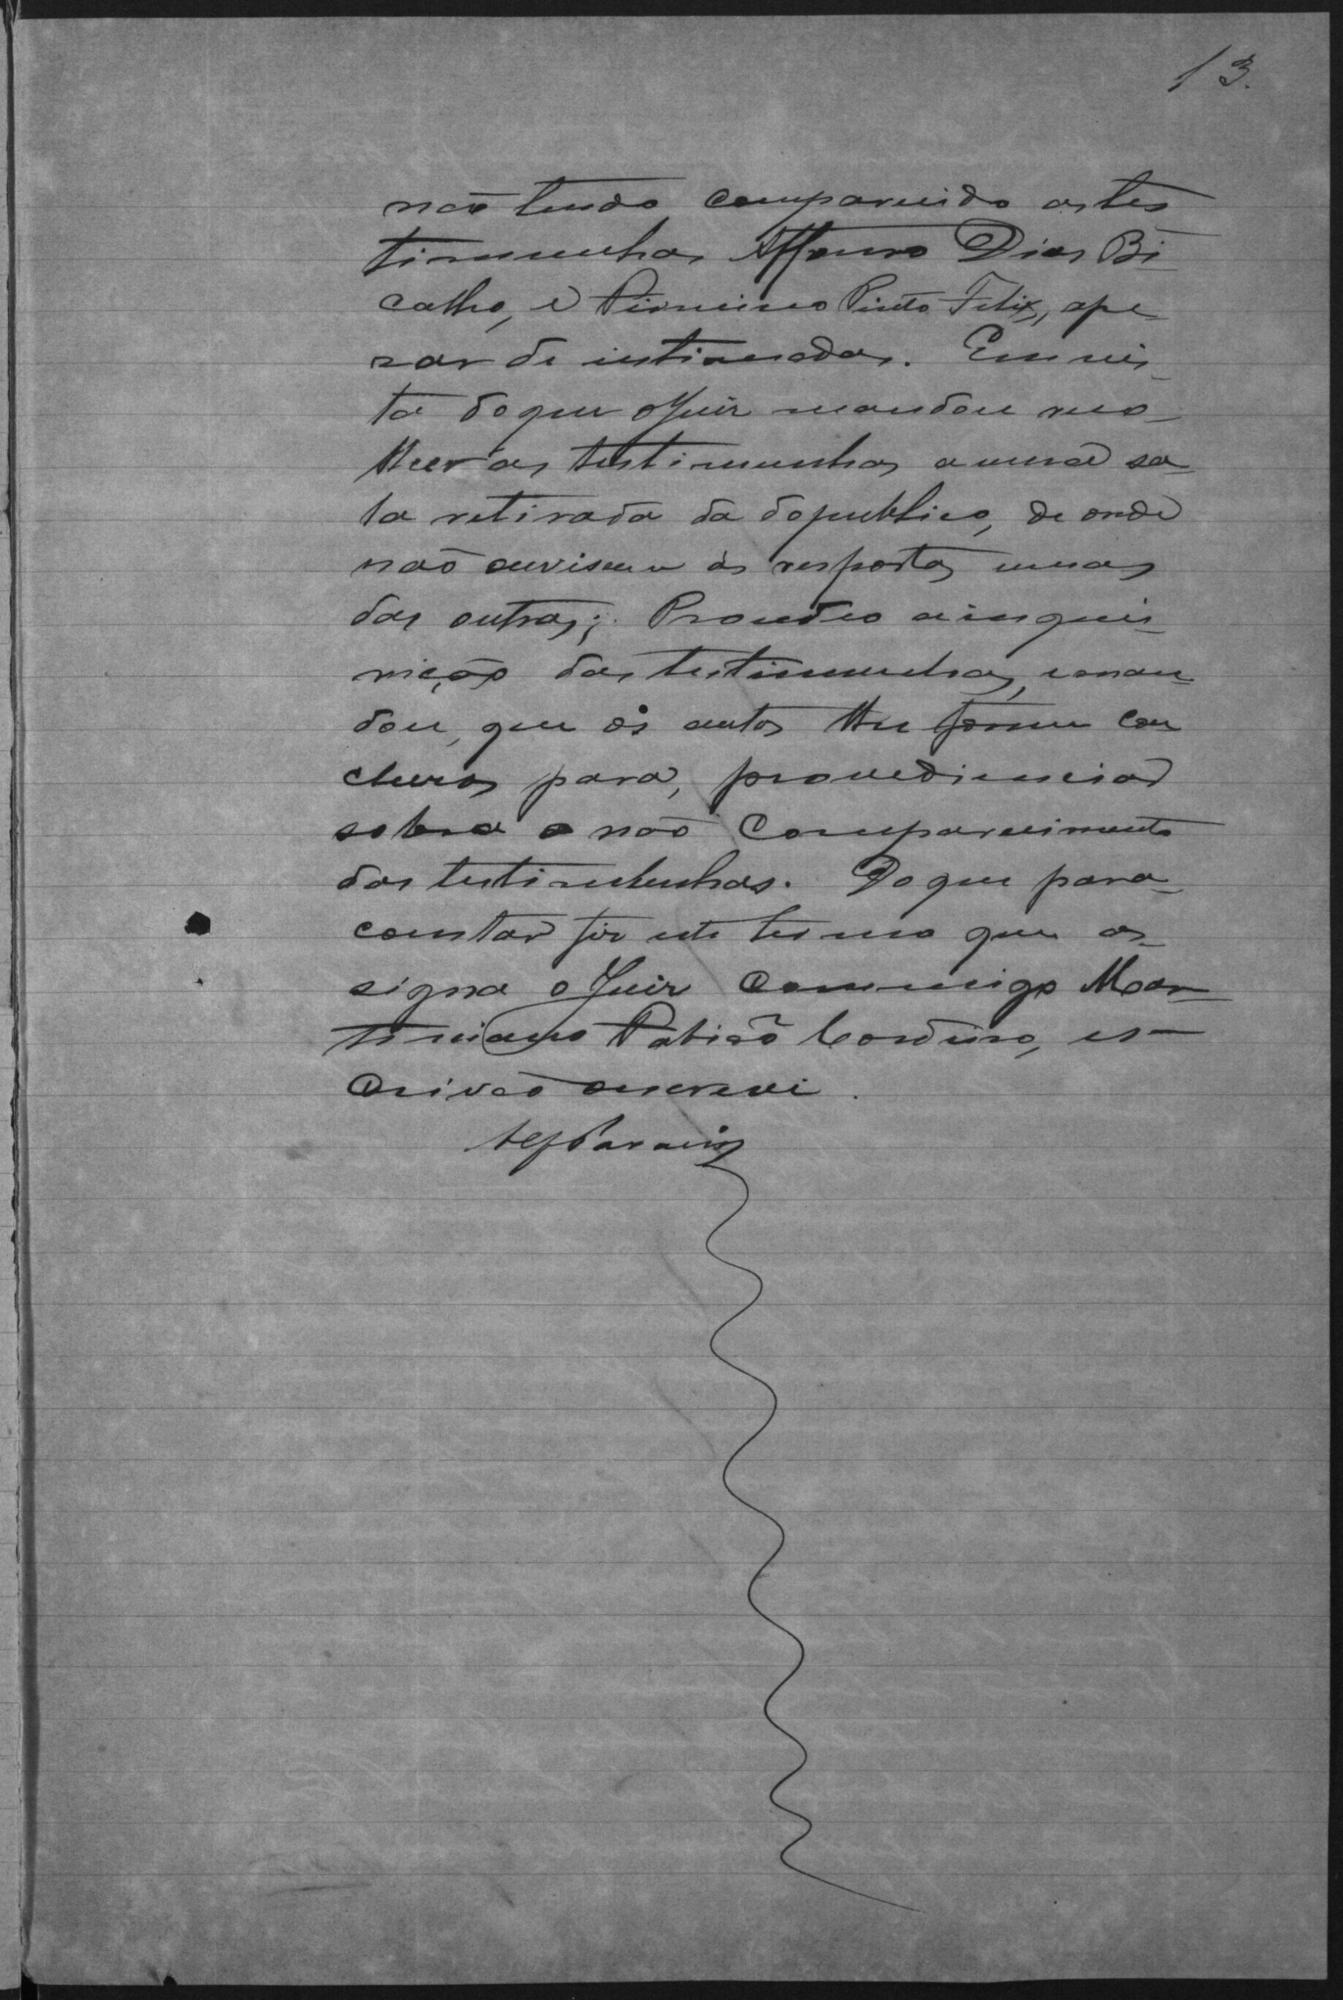 13.
não tendo comparecido as tes
timunhas Affonso Dias Bi
calho, e Pinto Felix, ape
zar de intimadas. Em vis
ta do que o Juiz mandou reco
lher as testimunhas a uma sa
la retirada da do publico, de onde
não ouvissem as respostas umas
das outras; Procedeo a inqui
rição das testimunhas, e man
dou, que os autos lhe fossem con
clusos para, providenciar
sobre o não comparecimento
das testimunhas. Do que para
constar fiz este termo que as
signa o Juiz commigo Mar
tiniano Patisão Cordeiro, es
crivão escrevi.